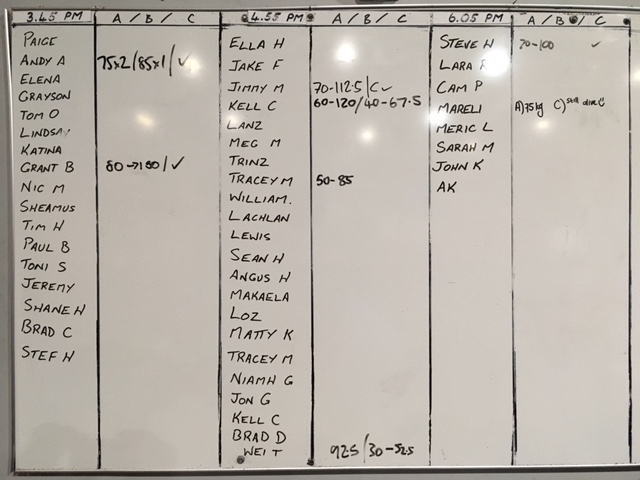 3.45 PM A / B / C
PAIGE
ANDY A 75x2/85x1/✓
ELENA
GRAYSON
TOM O
LINDSAY
KATINA
GRANT B 80→100/✓
NIC M
SHEAMUS
TIM H
PAUL B
TONI S
JEREMY
SHANE H
BRAD C
STEF H
4.55 PM A / B / C
ELLA H
JAKE F
JIMMY M 70-112.5/C✓
KELL C 60-120/40-67.5
LANZ
MEG M
TRINZ
TRACEY M 50-85
WILLIAM.
LACHLAN
LEWIS
SEAN H
ANGUS H
MAKAELA
LOZ
MATTY K
TRACEY M
NIAMH G
JON G
KELL C
BRAD D
WEI T 92.5/30-52.5
6.05 PM A / B / C
STEVE H 70-100 ✓
LARA
CAM P
MARELI A) 75kg C) still alive
MERIC L
SARAH M
JOHN K
AK